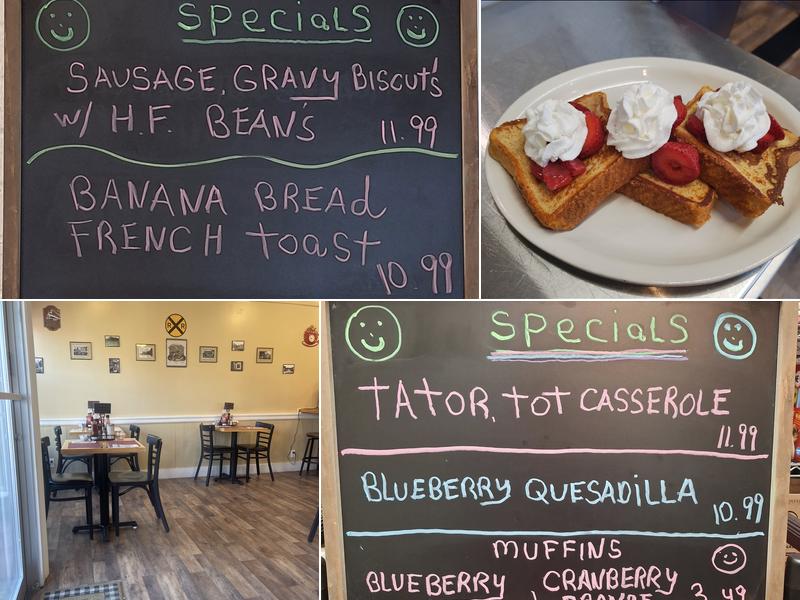 SPECIALS
SAUSAGE, GRAVY BISCUT'S
W/ H.F. BEAN'S 11.99
BANANA BREAd
FRENCH toast
10.99
R R
SPECIALS
TATOR, TOT CASSEROLE
11.99
BLUEBERRY QUESADILLA
10.99
MUFFINS
BLUEBERRY CRANBERRY 3.49
ORANGE